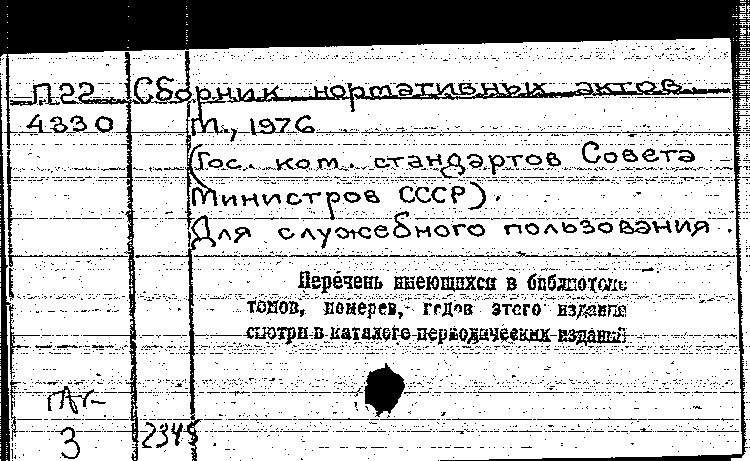 П22 Сборник нормативных актов.
4330 М., 1976
(Гос. ком. стандартов Совета
Министров СССР).
Для служебного пользования.
Перечень имеющихся в библиотеке
томов, номеров, годов этого издания
смотри в каталоге периодических изданий
3 2345